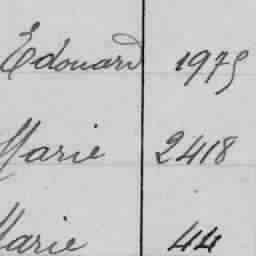 Edouard 1975
Marie 2418
Marie 44